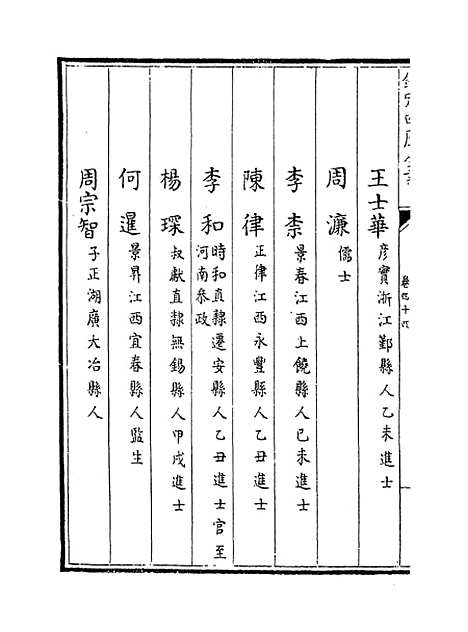 欽定四庫全書
卷四十六
王士華彦實浙江鄞縣人乙未進士
周濂儒士
李柰景春江西上饒縣人己未進士
陳律正律江西永豐縣人乙丑進士
李和時和直隸遷安縣人乙丑進士官至
河南叅政
楊琛叔獻直隸無錫縣人甲戌進士
何暹景昇江西宜春縣人監生
周宗智子正湖廣大冶縣人